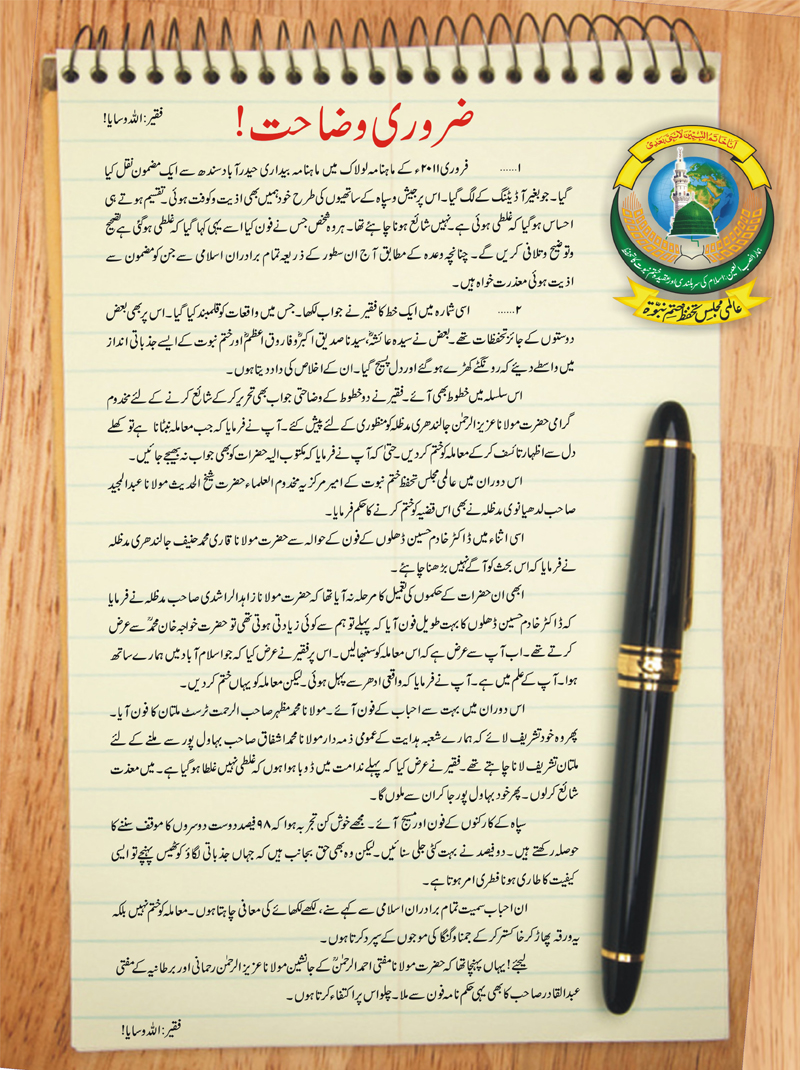 ضروری وضاحت!
فقیر: اللہ وسایا!
۱...... فروری ۲۰۱۱ء کے ماہنامہ لولاک میں ماہنامہ بیداری حیدرآباد سندھ سے ایک مضمون نقل کیا
گیا۔ جو بغیر آڈیٹنگ کے لگ گیا۔ اس پر جیش وسپاہ کے ساتھیوں کی طرح خود ہمیں بھی اذیت وکوفت ہوئی۔ تقسیم ہوتے ہی
احساس ہوگیا کہ غلطی ہوئی ہے۔ نہیں شائع ہونا چاہئے تھا۔ ہر وہ شخص جس نے فون کیا اسے یہی کہا گیا کہ غلطی ہوگئی ہے تصحیح
وتوضیح وتلافی کریں گے۔ چنانچہ وعدہ کے مطابق آج ان سطور کے ذریعہ تمام برادران اسلامی سے جن کو مضمون سے
اذیت ہوئی معذرت خواہ ہیں۔
۲...... اسی شمارہ میں ایک خط کا فقیر نے جواب لکھا۔ جس میں واقعات کو قلمبند کیا گیا۔ اس پر بھی بعض
دوستوں کے جائز تحفظات تھے۔ بعض نے سیدہ عائشہؓ، سیدنا صدیق اکبرؓ وفاروق اعظمؓ اور ختم نبوت کے ایسے جذباتی انداز
میں واسطے دیئے کہ رونگٹے کھڑے ہوگئے اور دل پسیج گیا۔ ان کے اخلاص کی داد دیتا ہوں۔
اس سلسلہ میں خطوط بھی آئے۔ فقیر نے دو خطوط کے وضاحتی جواب بھی تحریر کرکے شائع کرنے کے لئے مخدوم
گرامی حضرت مولانا عزیز الرحمٰن جالندھری مدظلہ کو منظوری کے لئے پیش کئے۔ آپ نے فرمایا کہ جب معاملہ نبٹانا ہے تو کھلے
دل سے اظہار تائسف کرکے معاملہ کو ختم کردیں۔ حتیٰ کہ آپ نے فرمایا کہ مکتوب الیہ حضرات کو بھی جواب نہ بھیجے جائیں۔
اس دوران میں عالمی مجلس تحفظ ختم نبوت کے امیر مرکزیہ مخدوم العلماء حضرت شیخ الحدیث مولانا عبدالمجید
صاحب لدھیانوی مدظلہ نے بھی اس قضیہ کو ختم کرنے کا حکم فرمایا۔
اسی اثناء میں ڈاکٹر خادم حسین ڈھلوں کے فون کے حوالہ سے حضرت مولانا قاری محمد حنیف جالندھری مدظلہ
نے فرمایا کہ اس بحث کو آگے نہیں بڑھنا چاہئے۔
ابھی ان حضرات کے حکموں کی تعمیل کا مرحلہ نہ آیا تھا کہ حضرت مولانا زاہد الراشدی صاحب مدظلہ نے فرمایا
کہ ڈاکٹر خادم حسین ڈھلوں کا بہت طویل فون آیا کہ پہلے تو ہم سے کوئی زیادتی ہوتی تھی تو حضرت خواجہ خان محمدؒ سے عرض
کرتے تھے۔ اب آپ سے عرض ہے کہ اس معاملہ کو سنبھالیں۔ اس پر فقیر نے عرض کیا کہ جو اسلام آباد میں ہمارے ساتھ
ہوا۔ آپ کے علم میں ہے۔ آپ نے فرمایا کہ واقعی ادھر سے پہل ہوئی۔ لیکن معاملہ کو یہاں ختم کردیں۔
اس دوران میں بہت سے احباب کے فون آئے۔ مولانا محمد مظہر صاحب الرحمت ٹرسٹ ملتان کا فون آیا۔
پھر وہ خود تشریف لائے کہ ہمارے شعبہ ہدایت کے عمومی ذمہ دار مولانا محمد اشفاق صاحب بہاول پور سے ملنے کے لئے
ملتان تشریف لانا چاہتے تھے۔ فقیر نے عرض کیا کہ پہلے ندامت میں ڈوبا ہوا ہوں کہ غلطی نہیں غلطا ہوگیا ہے۔ میں معذرت
شائع کرلوں۔ پھر خود بہاول پور جاکر ان سے ملوں گا۔
سپاہ کے کارکنوں کے فون اور میسج آئے۔ مجھے خوش کن تجربہ ہوا کہ ۹۸ فیصد دوست دوسروں کا موقف سننے کا
حوصلہ رکھتے ہیں۔ دو فیصد نے بہت کٹی جلی سنائیں۔ لیکن وہ بھی حق بجانب ہیں کہ جہاں جذباتی لگاؤ کو ٹھیس پہنچے تو ایسی
کیفیت کا طاری ہونا فطری امر ہوتا ہے۔
ان احباب سمیت تمام برادران اسلامی سے کہے سنے، لکھے لکھائے کی معافی چاہتا ہوں۔ معاملہ کو ختم نہیں بلکہ
یہ ورقہ پھاڑ کر خاکستر کرکے جمنا وگنگا کی موجوں کے سپرد کرتا ہوں۔
لیجئے! یہاں پہنچا تھا کہ حضرت مولانا مفتی احمد الرحمٰنؒ کے جانشین مولانا عزیز الرحمٰن رحمانی اور برطانیہ کے مفتی
عبدالقادر صاحب کا بھی یہی حکم نامہ فون سے ملا۔ چلو اس پر اکتفاء کرتا ہوں۔
فقیر: اللہ وسایا!
انا خاتم النبیین لانبی بعدی
ہمارا نصب العین: اسلام کی سربلندی اور عقیدہ ختم نبوت کا تحفظ
عالمی مجلس تحفظ ختم نبوۃ